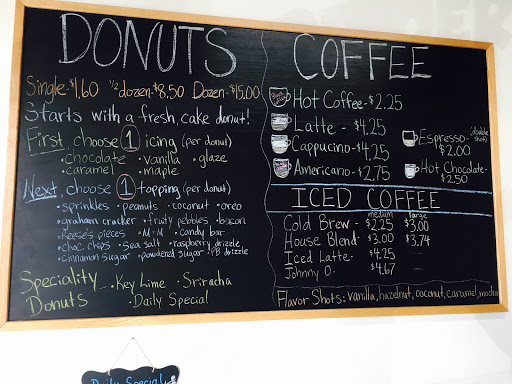 DONUTS
Single-$1.60 1/2 dozen-$8.50 Dozen-$15.00
Starts with a fresh, cake donut!
First, choose 1 icing (per donut)
• chocolate • vanilla • glaze
• caramel • maple
Next, choose 1 topping (per donut)
• sprinkles • peanuts • coconut • oreo
• graham cracker • fruity pebbles • bacon
• Reese's pieces • M+M • candy bar
• choc. chips • Sea salt • raspberry drizzle
• cinnamon sugar • powdered sugar • PB drizzle
Speciality • Key Lime • Sriracha
Donuts • Daily Special
COFFEE
Hot Coffee-$2.25
Latte - $4.25
Cappucino-$4.25
Americano-$2.75
Espresso- (double shot)
$2.00
Hot Chocolate-
$2.50
ICED COFFEE
medium large
Cold Brew - $2.25 $3.00
House Blend- $3.00 $3.74
Iced Latte- $4.25
Johnny O- $4.67
Flavor Shots: vanilla, hazelnut, coconut, caramel, mocha
Daily Special